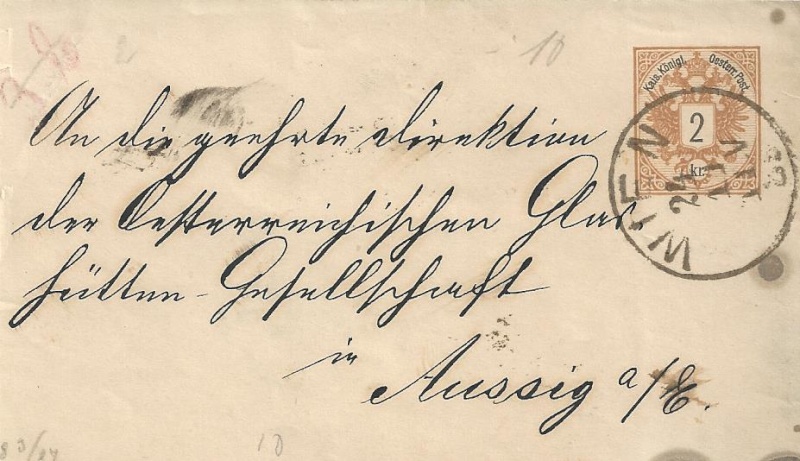 10
Kais. Königl. Oesterr. Post.
2
kr.
WIEN
An die geehrte Direktion
der Oesterreichischen Glas-
hütten-Gesellschaft
in
Aussig a/E.
10